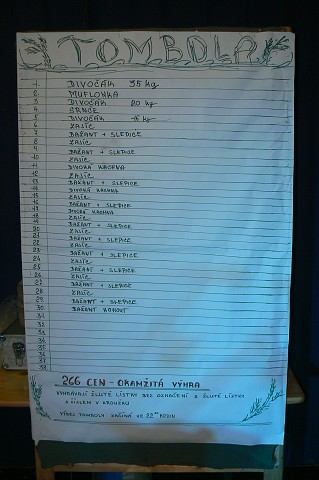 TOMBOLA
1. DIVOČÁK 35 kg
2. MUFLONKA
3 DIVOČÁK 20 kg
4 SRNČE
5 DIVOČÁK 15 kg
6 ZAJÍC
7 BAŽANT + SLEPICE
8 ZAJÍC
9 BAŽANT + SLEPICE
10 ZAJÍC
11 DIVOKÁ KACHNA
12 ZAJÍC
13 BAŽANT + SLEPICE
14 DIVOKÁ KACHNA
15 ZAJÍC
16 BAŽANT + SLEPICE
17 DIVOKÁ KACHNA
18 ZAJÍC
19 BAŽANT + SLEPICE
20 ZAJÍC
21 BAŽANT + SLEPICE
22 ZAJÍC
23 BAŽANT + SLEPICE
24 ZAJÍC
25 BAŽANT + SLEPICE
26 ZAJÍC
27 BAŽANT + SLEPICE
28 ZAJÍC
29 BAŽANT + SLEPICE
30 BAŽANT KOHOUT
31
32
33
34
35
36
37
38
266 CEN - OKAMŽITÁ VÝHRA
VYHRÁVAJÍ ŽLUTÉ LÍSTKY BEZ OZNAČENÍ A ŽLUTÉ LÍSTKY
S ČÍSLEM V KROUŽKU
VÝDEJ TOMBOLY ZAČÍNÁ VE 22⁰⁰ HODIN